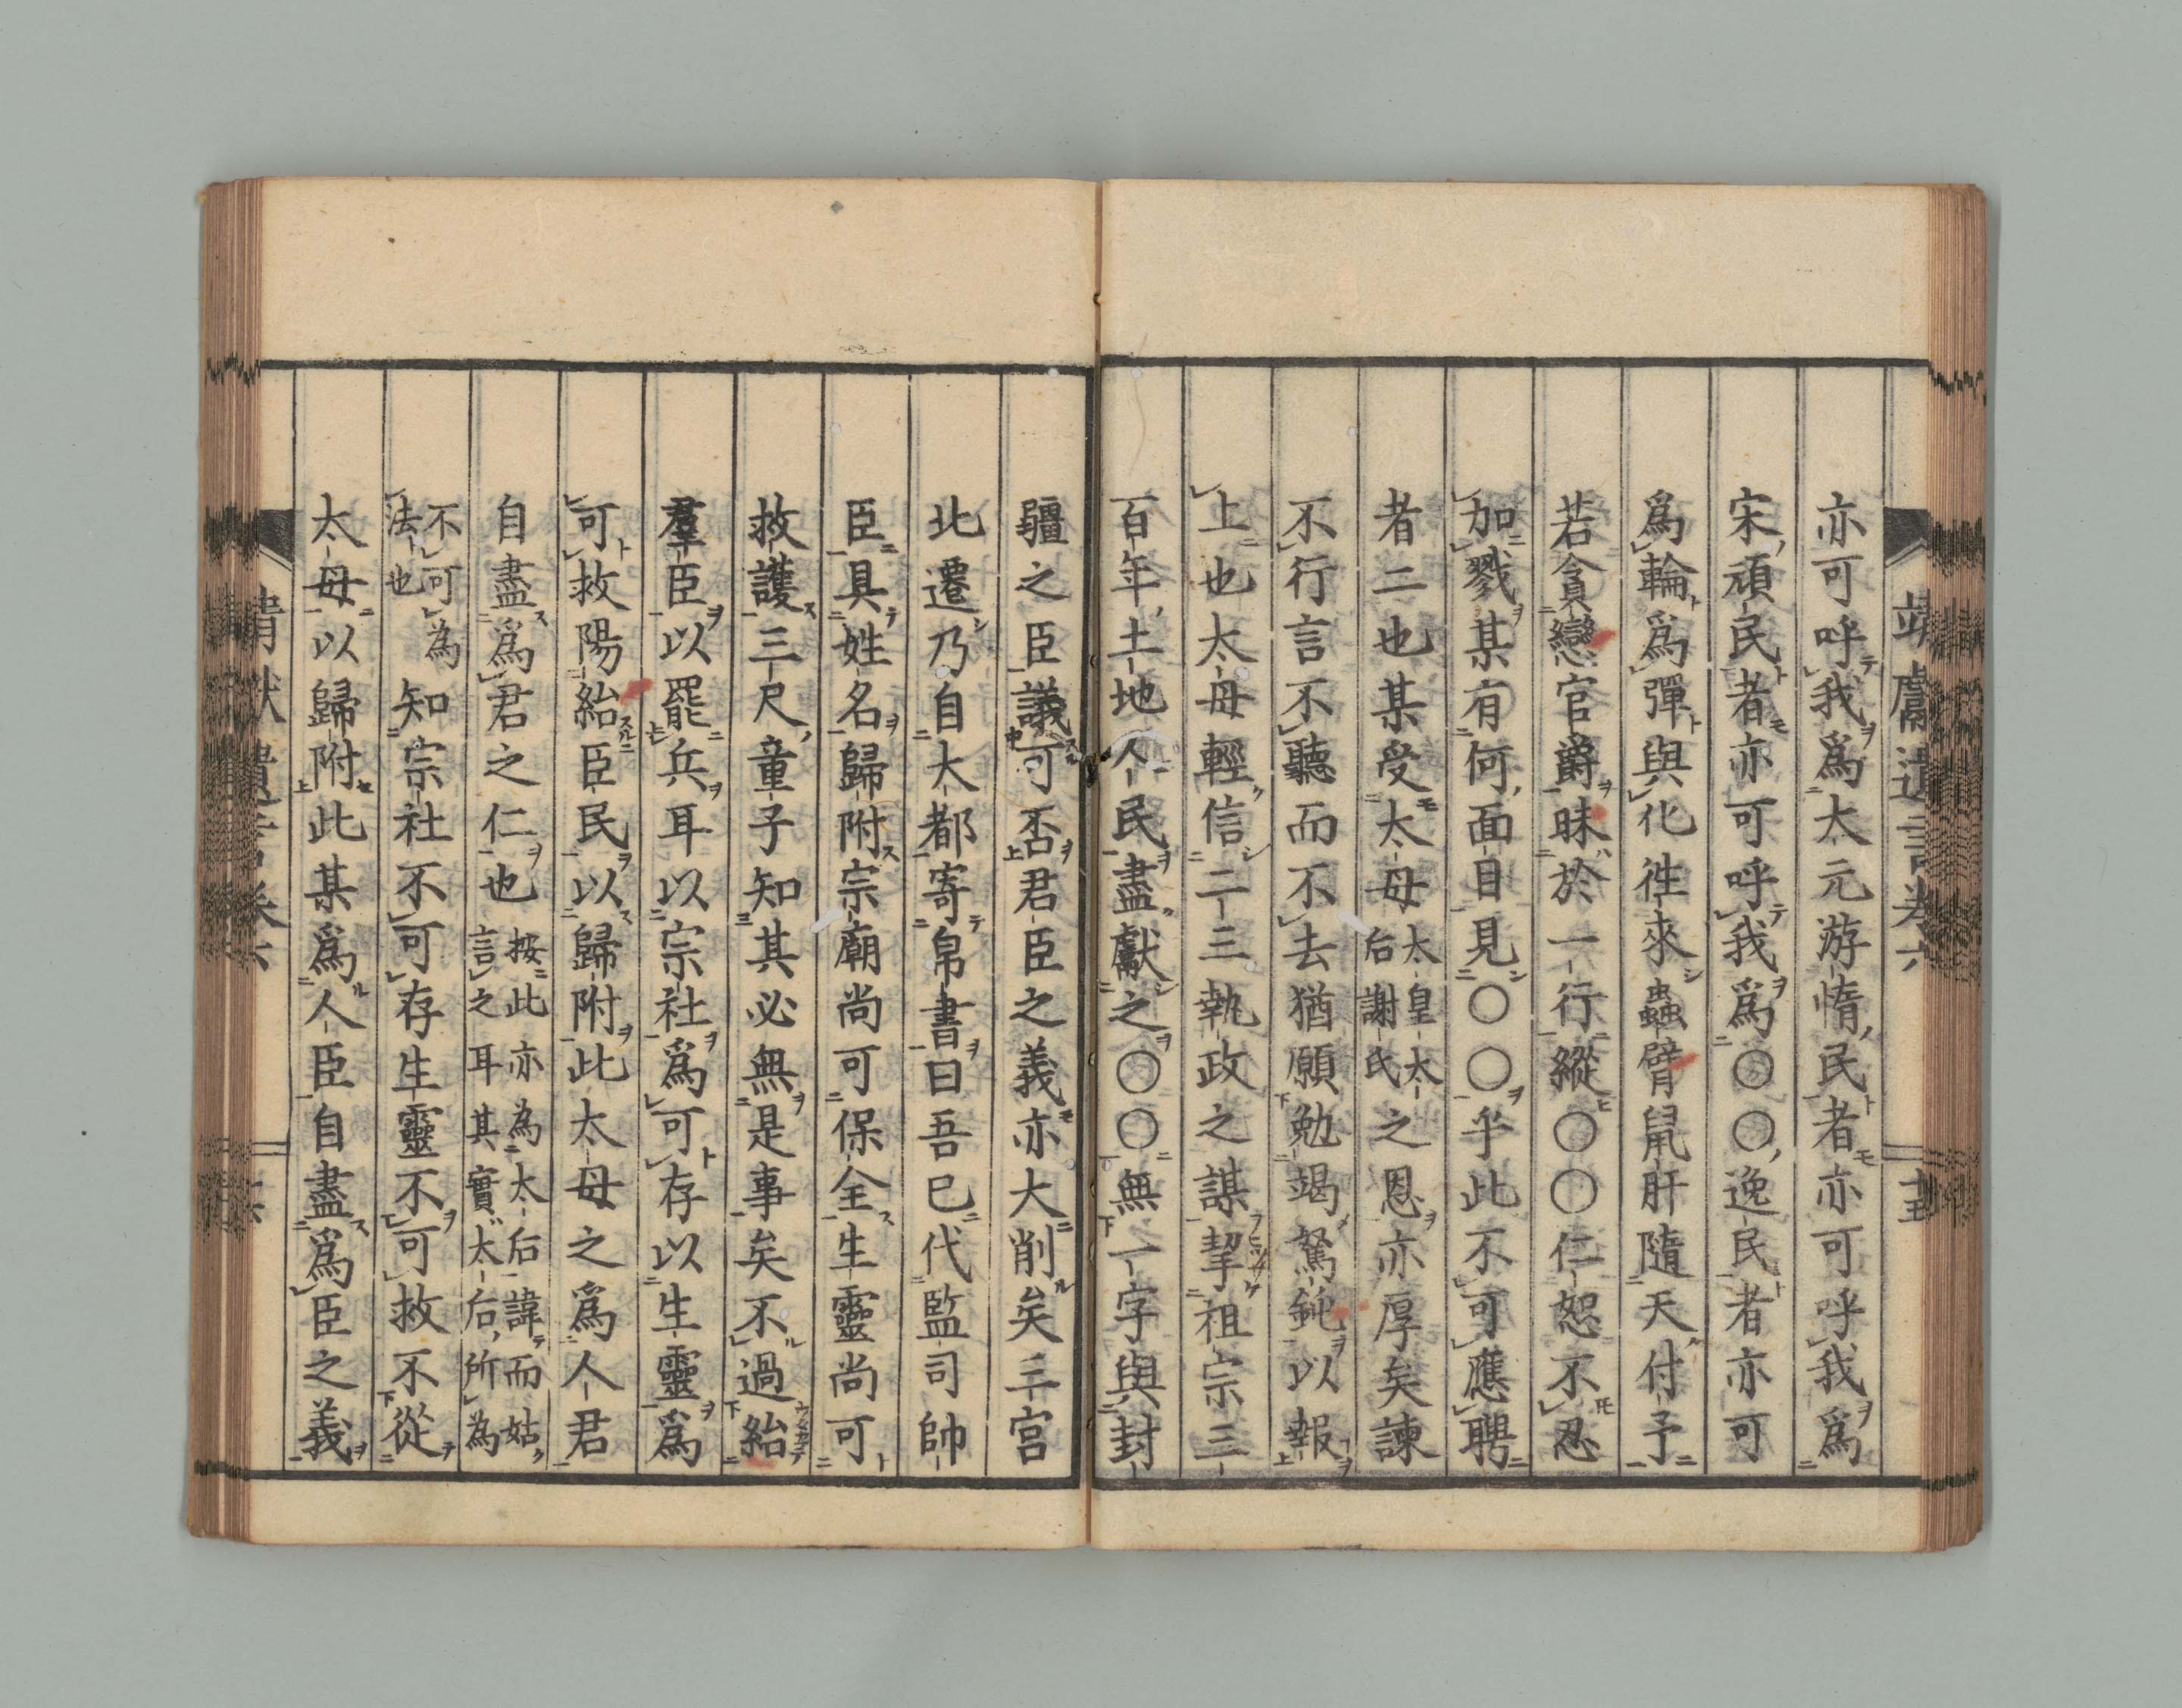 靖獻遺言卷六
十五
亦可呼我爲大元游惰民者亦可呼我爲
宋頑民者亦可呼我爲〇〇逸民者亦可
爲輪爲彈與化徃來蟲臂鼠肝隨天付予
若貪戀官爵昧於一行縱〇〇仁恕不忍
加戮某有何面目見〇〇乎此不可應聘
者二也某受太母太皇太后謝氏之恩亦厚矣諫
不行言不聽而不去猶願勉竭駑鈍以報
上也太母輕信二三執政之謀挈祖宗三
百年土地人民盡獻之〇〇無一字與封
疆之臣議可否君臣之義亦大削矣三宮
北遷乃自大都寄帛書曰吾已代監司帥
臣具姓名歸附宗廟尚可保全生靈尚可
救護三尺童子知其必無是事矣不過紿
羣臣以罷兵耳以宗社爲可存以生靈爲
可救陽紿臣民以歸附此太母之爲人君
自盡爲君之仁也按此亦為太后諱而姑言之耳其實太后所為
不可為法也知宗社不可存生靈不可救不從
太母以歸附此某爲人臣自盡爲臣之義